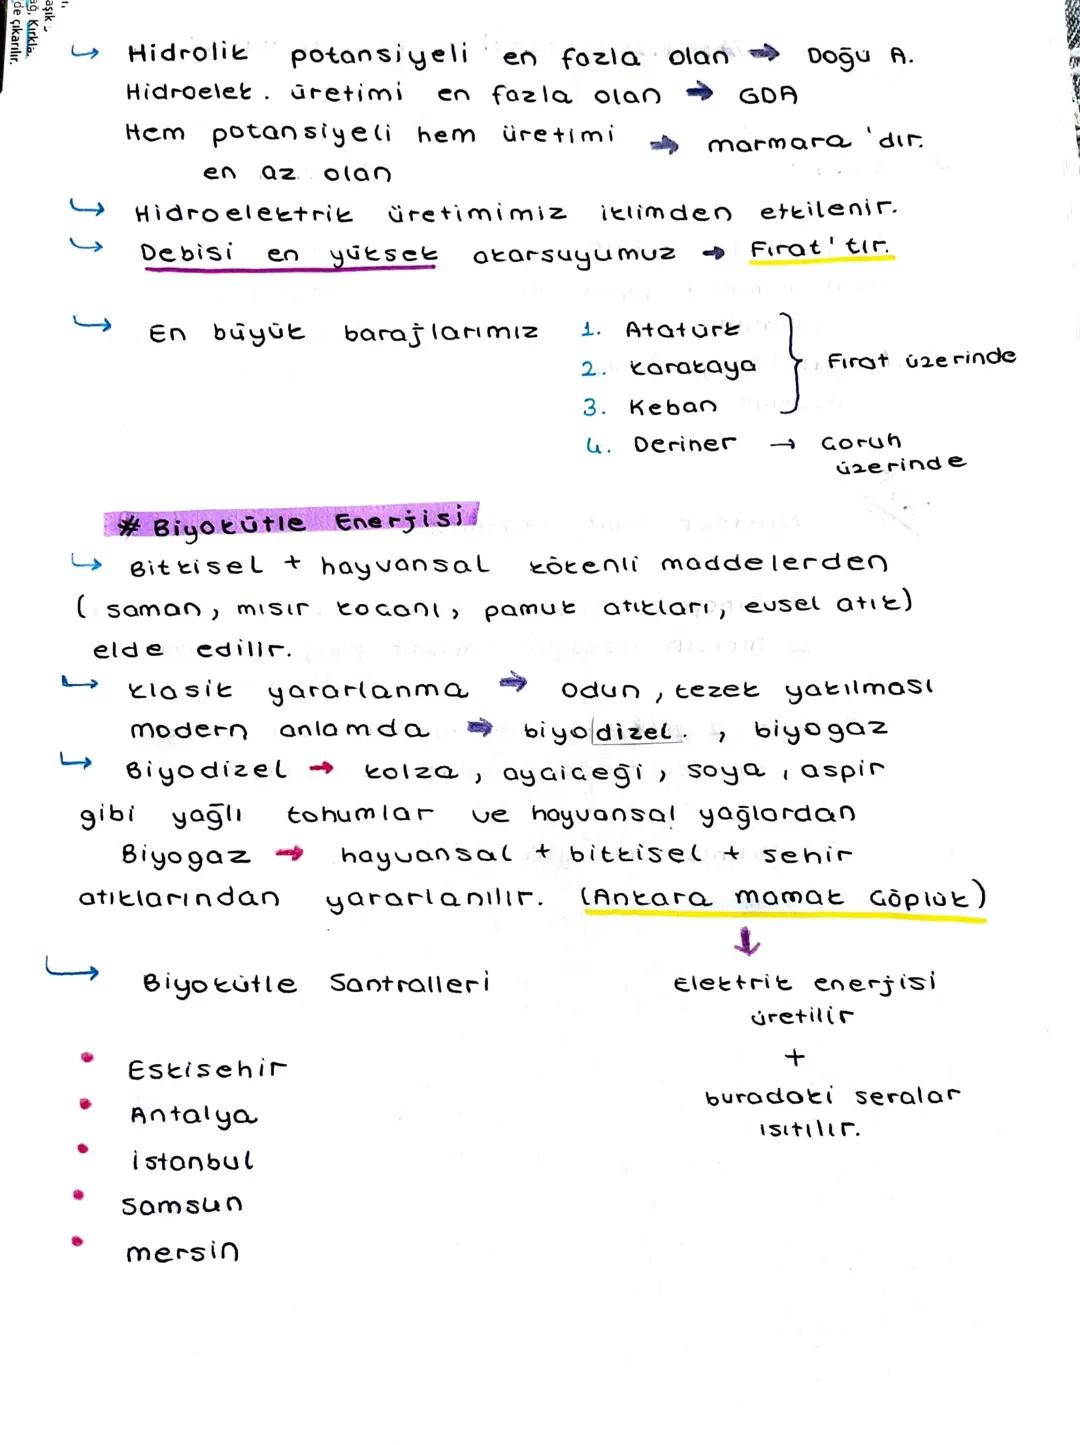 aşık -
ağ, Kırkla
de çıkarılır.
↳ Hidrolik potansiyeli en fazla olan → Doğu A.
Hidroelek. üretimi en fazla olan → GDA
Hem potansiyeli hem üretimi → marmara 'dır.
en az olan
↳ Hidroelektrik üretimimiz iklimden etkilenir.
↳ Debisi en yüksek akarsuyumuz → Fırat'tır.
↳ En büyük barajlarımız 1. Atatürk
2. Karakaya } Fırat üzerinde
3. Keban
4. Deriner → Çoruh
üzerinde
# Biyokütle Enerjisi
↳ Bitkisel + hayvansal kökenli maddelerden
( saman, mısır koçanı, pamuk atıkları, evsel atık)
elde edilir.
↳ klasik yararlanma → odun, tezek yakılması
modern anlamda → biyodizel. , biyogaz
↳ Biyodizel → kolza, ayçiçeği, soya, aspir
gibi yağlı tohumlar ve hayvansal yağlardan
Biyogaz → hayvansal + bitkisel + sehir
atıklarından yararlanılır. (Ankara mamak Çöplük)
↓
↳ Biyokütle Santralleri
Elektrik enerjisi
üretilir
+
buradaki seralar
ısıtılır.
• Eskisehir
• Antalya
• istanbul
• Samsun
• mersin